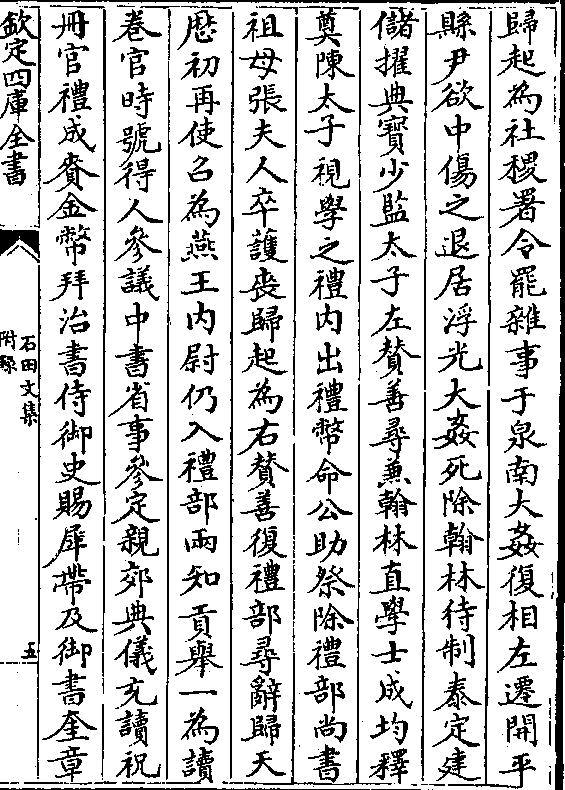 歸起為社稷署令罷雜事于泉南大姦復相左遷開平
縣尹欲中傷之退居浮光大姦死除翰林待制泰定建
儲擢典寶少監太子左贊善尋兼翰林直學士成均釋
奠陳太子視學之禮内出禮幣命公助祭除禮部尚書
祖母張夫人卒護喪歸起為右贊善復禮部尋辭歸天
厯初再使召為燕王内尉仍入禮部兩知貢舉一為讀
卷官時號得人參議中書省事參定親郊典儀充讀祝
冊官禮成賚金幣拜治書侍御史賜犀帶及御書奎章
欽定四庫全書
石田文集
附録
五